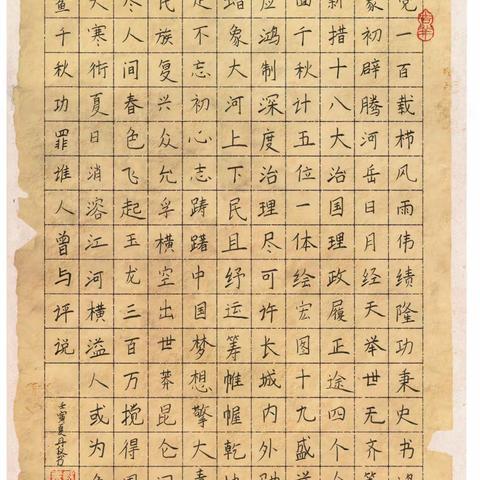 党一百载栉风雨伟绩隆功秉史书
家初辟腾河岳日月经天举世无齐
新措十八大治国理政履正途四个
面千秋计五位一体绘宏图十九盛
应鸿制深度治理尽可许长城内外驰
象大河上下民且纾运筹帷幄乾坤
定不忘初心志踌躇中国梦想擎大
民族复兴众允孚横空出世莽昆仑
尽人间春色飞起玉龙三百万搅得周
寒彻夏日消溶江河横溢人或为鱼
千秋功罪谁人曾与评说
壬寅夏丹